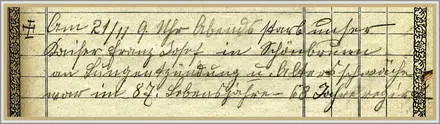 Am 21/11 9. Uhr Abends starb unser
Kaiser Franz Josef in Schönbrunn
an Lungenentzündung u. Altersschwäche
war im 87. Lebensjahre - 68 Jahre regiert